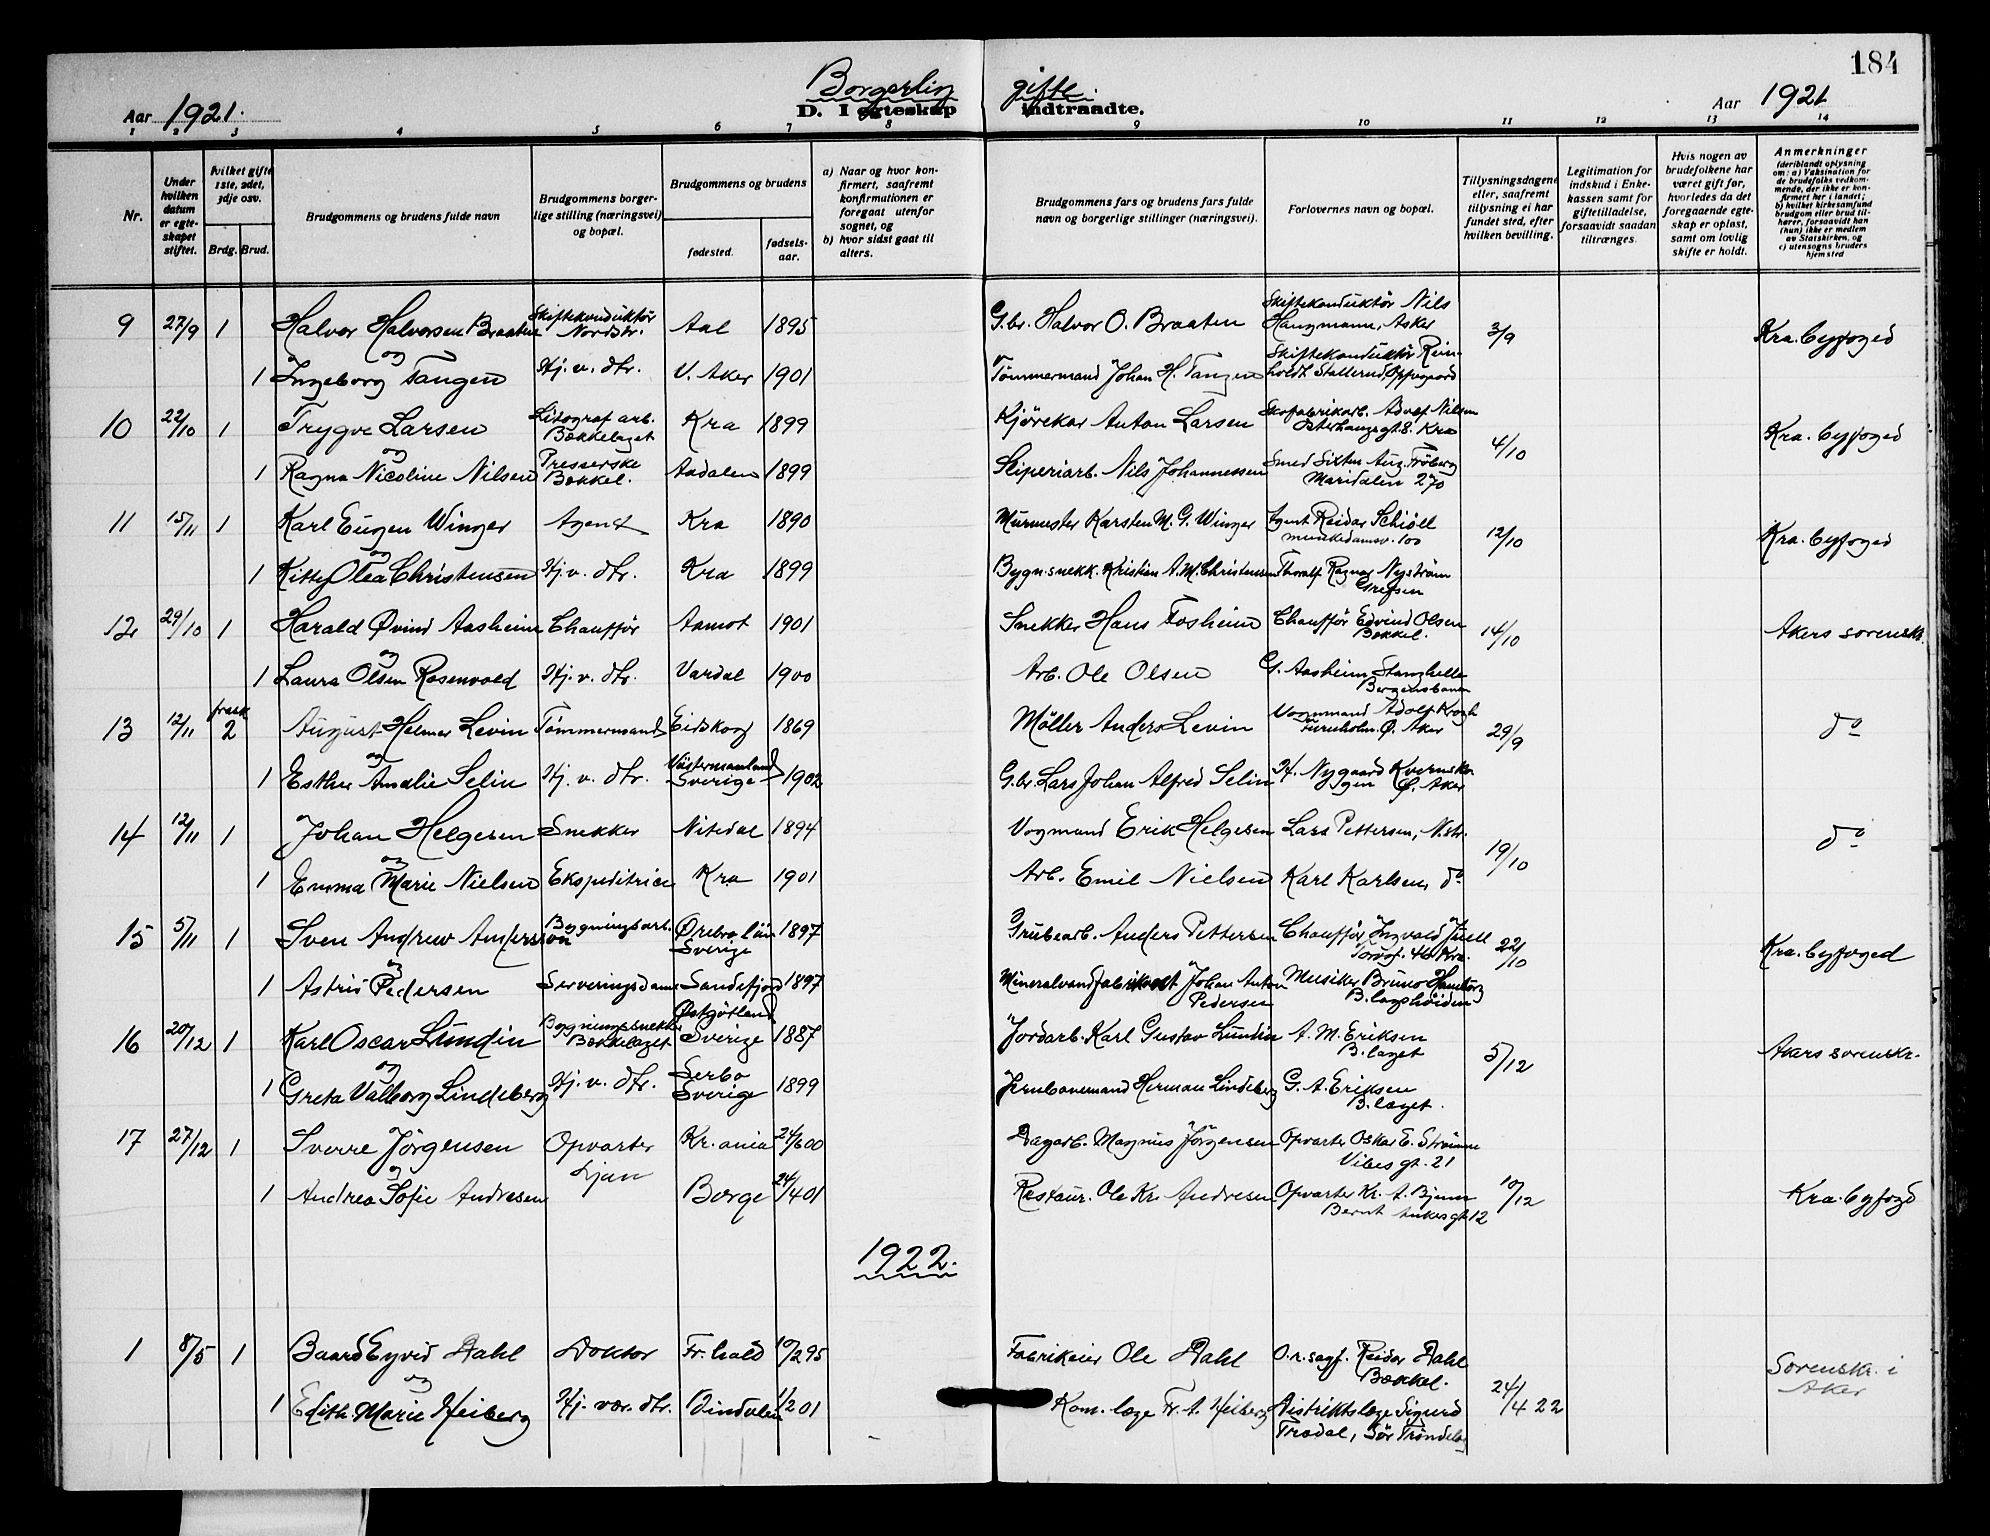 184
Borgerlig gifte
Aar 1921. D. I egteskap indtraadte. Aar 1921
1 2 3 4 5 6 7 8 9 10 11 12 13 14
Nr.
Under hvilken datum er egteskapet stiftet.
hvilket gifte 1ste, 2det, 3dje osv.
Brdg. Brud.
Brudgommens og brudens fulde navn
Brudgommens borgerlige stilling (næringsvei) og bopæl.
Brudgommens og brudens
fødested.
fødselsaar.
a) Naar og hvor konfirmert, saafremt konfirmationen er foregaat utenfor sognet, og
b) hvor sidst gaat til alters.
Brudgommens fars og brudens fars fulde navn og borgerlige stillinger (næringsvei).
Forlovernes navn og bopæl.
Tillysningsdagene eller, saafremt tillysning ei har fundet sted, efter hvilken bevilling.
Legitimation for indskud i Enkekassen samt for giftetilladelse, forsaavidt saadan tiltrænges.
Hvis nogen av brudefolkene har været gift før, hvorledes da det foregaaende egteskap er opløst, samt om lovlig skifte er holdt.
Anmerkninger (deriblandt oplysning om: a) Vaksination for de brudefolks vedkommende, der ikke er konfirmert her i landet; b) hvilket kirkesamfund brudgom eller brud tilhører, forsaavidt han (hun) ikke er medlem av Statskirken, og c) utensogns bruders hjemsted
9 27/9 1 Halvor Halvorsen Braaten Skiftekonduktør Nordstr. Aal 1895 G.br. Halvor O. Braaten Skiftekonduktør Nils Haugmann, Asker 3/9 Kra. byfoged
og
1 Ingeborg Tangen Hj. v. dtr. V. Aker 1901 Tømmermand Johan H. Tangen Skiftekonduktør Reinholdt Stallerud, Oppegaard
10 22/10 1 Trygve Larsen Litograf arb. Bækkelaget Kra 1899 Kjørekar Anton Larsen Skofabrikarb. Adolf Nilsen Sterhaugsgt. 8. Kra 4/10 Kra. byfoged
og
1 Ragna Nicoline Nilsen Presserske Bækkel. Aadalen 1899 Sliperiarb. Nils Johannessen Smed Sixten Aug. Frøberg Maridalen 270
11 15/11 1 Karl Eugen Winger Agent Kra 1890 Murmester Karsten M. G. Winger Agent Reidar Schiøll Munkedamsv. 100 12/10 Kra. byfoged
og
1 Kitty Olea Christensen Hj. v. dtr. Kra 1899 Bygn.snekk. Kristian A. M. Christensen Thoralf Ragnar Nystrøm Grefsen
12 29/10 1 Harald Øvind Aasheim Chauffør Aamot 1901 Snekker Hans Fosheim Chauffør Edvind Olsen Bækkel. 14/10 Akers sorenskr.
og
1 Laura Olsen Rosenvold Hj. v. dtr. Vardal 1900 Arb. Ole Olsen G. Aasheim Stanghelle Bergensbanen
13 12/11 frask 2 August Helmer Levin Tømmermand Eidskog 1869 Møller Anders Levin Vognmand Adolf Krogh Furuholm. Ø. Aker 29/9 do
og
1 Esther Amalie Selin Hj. v. dtr. Västermanland Sverige 1902 G.br. Lars Johan Alfred Selin H. Nygaard Kværnskogen Ø. Aker
14 12/11 1 Johan Helgesen Snekker Nitedal 1894 Vogmand Erik Helgesen Lars Pettersen, N.str. 19/10 do
og
1 Emma Marie Nielsen Ekspeditrice Kra 1901 Arb. Emil Nielsen Karl Karlsen, do
15 5/11 1 Sven Andrew Andersson Bygningsarb. Ørebro län Sverige 1897 Grubearb. Anders Pettersen Chauffør Ingvald Juell Torvgt. 46 Kra. 22/10 Kra. byfoged
og
1 Astrid Pedersen Serveringsdame Sandefjord 1897 Mineralvandfabrikant Johan Anton Pedersen Musiker Bruno Hamborg B.lagshøiden
16 20/12 1 Karl Oscar Lundin Bygningssnekker Bækkelaget Østgötland Sverige 1887 Jordarb. Karl Gustav Lundin A. M. Eriksen B.laget 5/12 Akers sorenskr.
og
1 Greta Valborg Lindeberg Hj. v. dtr. Serbo Sverige 1899 Jernbanemand Herman Lindeberg G. A. Eriksen B.laget.
17 27/12 1 Sverre Jørgensen Opvarter Ljan Kr.ania 24/6 00 Dagarb. Magnus Jørgensen Opvarter Oskar E. Strømm Vibesgt. 21 10/12 Kra. byfogd
og
1 Andrea Sofie Andresen Borge 24/4 01 Restaur. Ole Kr. Andresen Opvarter Kr. A. Bjunn Bernt Ankersgt. 12
1922.
1 8/5 1 Baard Eyvid Dahl Doktor Fr.hald 10/2 95 Fabrikeier Ole Dahl O.r.sagf. Reidar Dahl Bækkel. 24/4 22 Sorenskr. i Aker
og
1 Edith Marie Heiberg Hj. vær. dtr. Vindalen 1/2 01 Kom. læge Fr. A. Heiberg Distriktslæge Sigurd Trædal, Sør Trøndelag